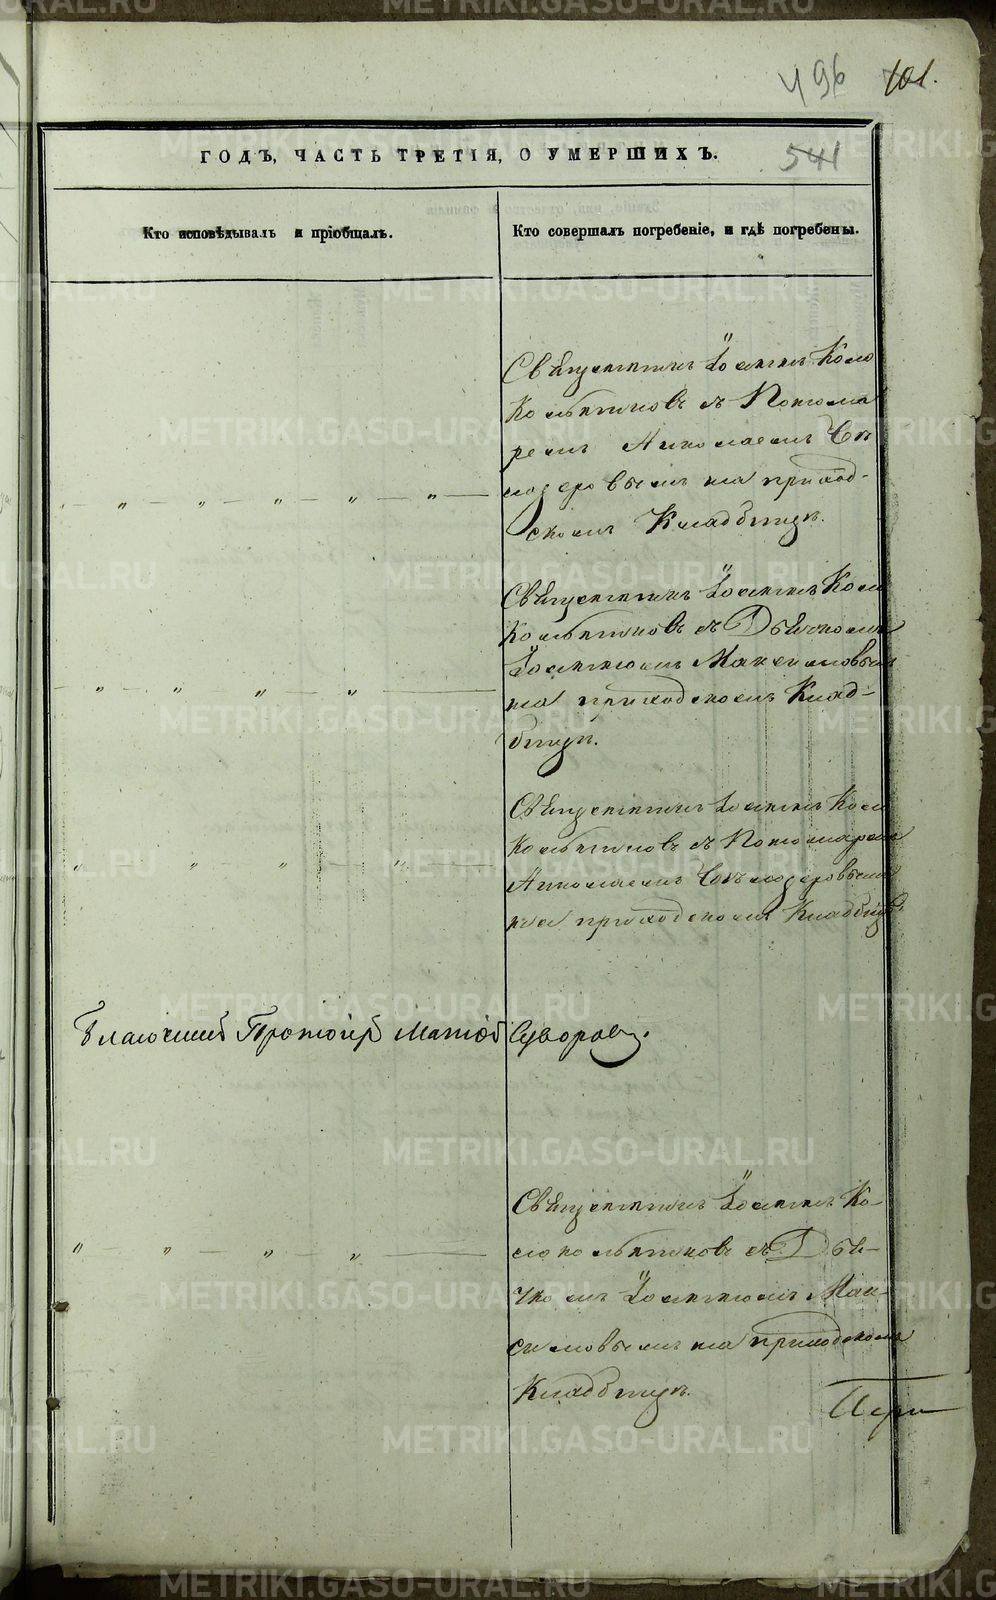 496 101.
541
ГОДЪ, ЧАСТЬ ТРЕТІЯ, О УМЕРШИХЪ.
Кто исповѣдывалъ и пріобщалъ.
Кто совершалъ погребеніе, и гдѣ погребены.
Священникъ Іоаннъ Коло
кольниковъ съ Понома
ремъ Николаемъ
на приход-
скомъ Кладбищѣ.
Священникъ Іоаннъ Коло
кольниковъ съ Дьячкомъ
Іоанномъ Максимовымъ
на приходскомъ Клад-
бищѣ.
Священникъ Іоаннъ Коло
кольниковъ съ Пономаремъ
Николаемъ
на приходскомъ Кладбищѣ.
Благочинный Протоіерей Матѳей Суворовъ.
Священникъ Іоаннъ Ко-
локольниковъ съ Дья-
чкомъ Іоанномъ Мак-
симовымъ на приходскомъ
Кладбищѣ.
METRIKI.GASO-URAL.RU